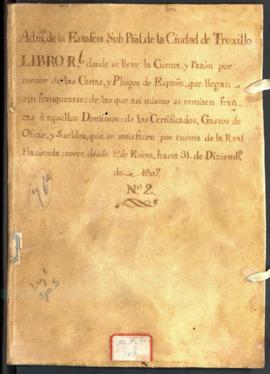 Adm.on de la Estafeta Sub Pral, de la Ciudad de Truxillo
LIBRO R.l donde se lleva la Cuenta, y razón por
menor de las Cartas, y Pliegos de España, que llegan
sin franquearse: de las que asi mismo se remiten fran-
cas á aquellos Dominios: de los Certificados, Gastos de
Oficio, y Sueldos, que se satisfacen por cuenta de la Real
Hacienda: corre desde 1.º de Enero, hasta 31. de Diziemb.e
de 1807.
N.º 2.